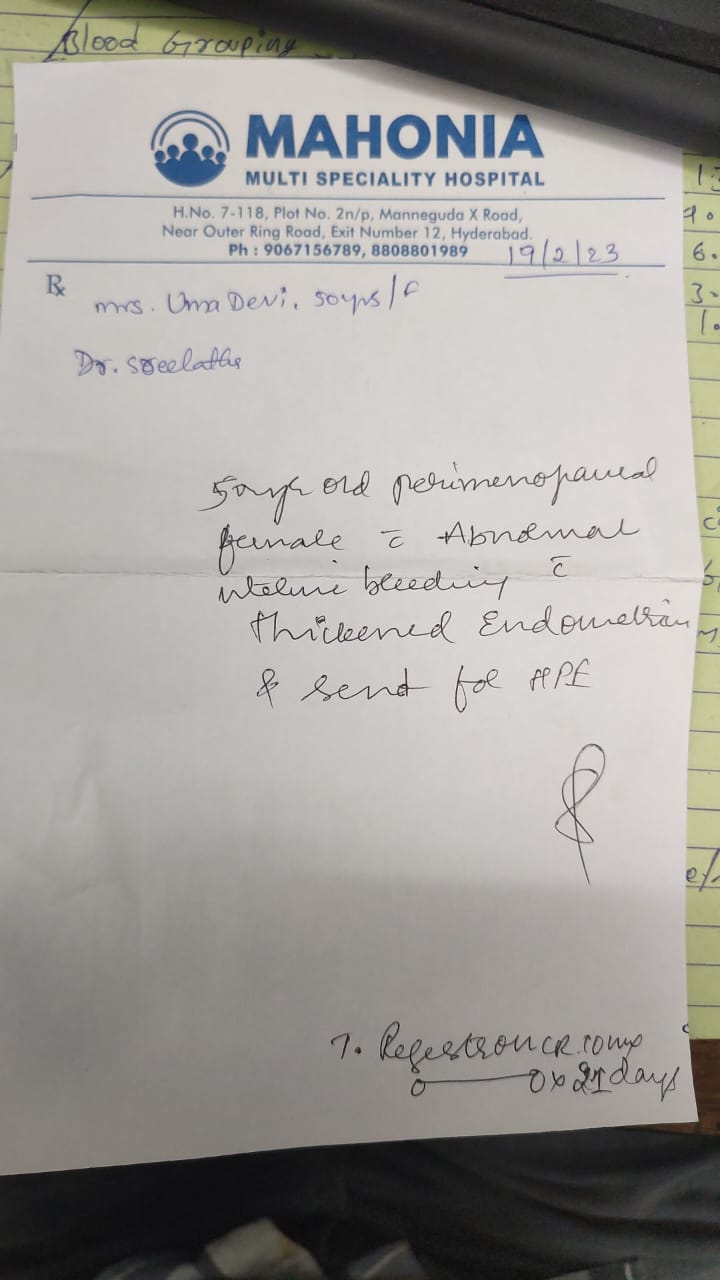 Blood Grouping
MAHONIA
MULTI SPECIALITY HOSPITAL
H.No. 7-118, Plot No. 2n/p, Manneguda X Road,
Near Outer Ring Road, Exit Number 12, Hyderabad.
Ph : 9067156789, 8808801989
19/2/23
Rx
Mrs. Uma Devi. 50yrs/F
Dr. Sreelatha
50yr old perimenopausal
female c̄ Abnormal
uterine bleeding c̄
thickened Endometrium
& send for HPE
T. Regestron CR 10mg
0——0 x 21 days